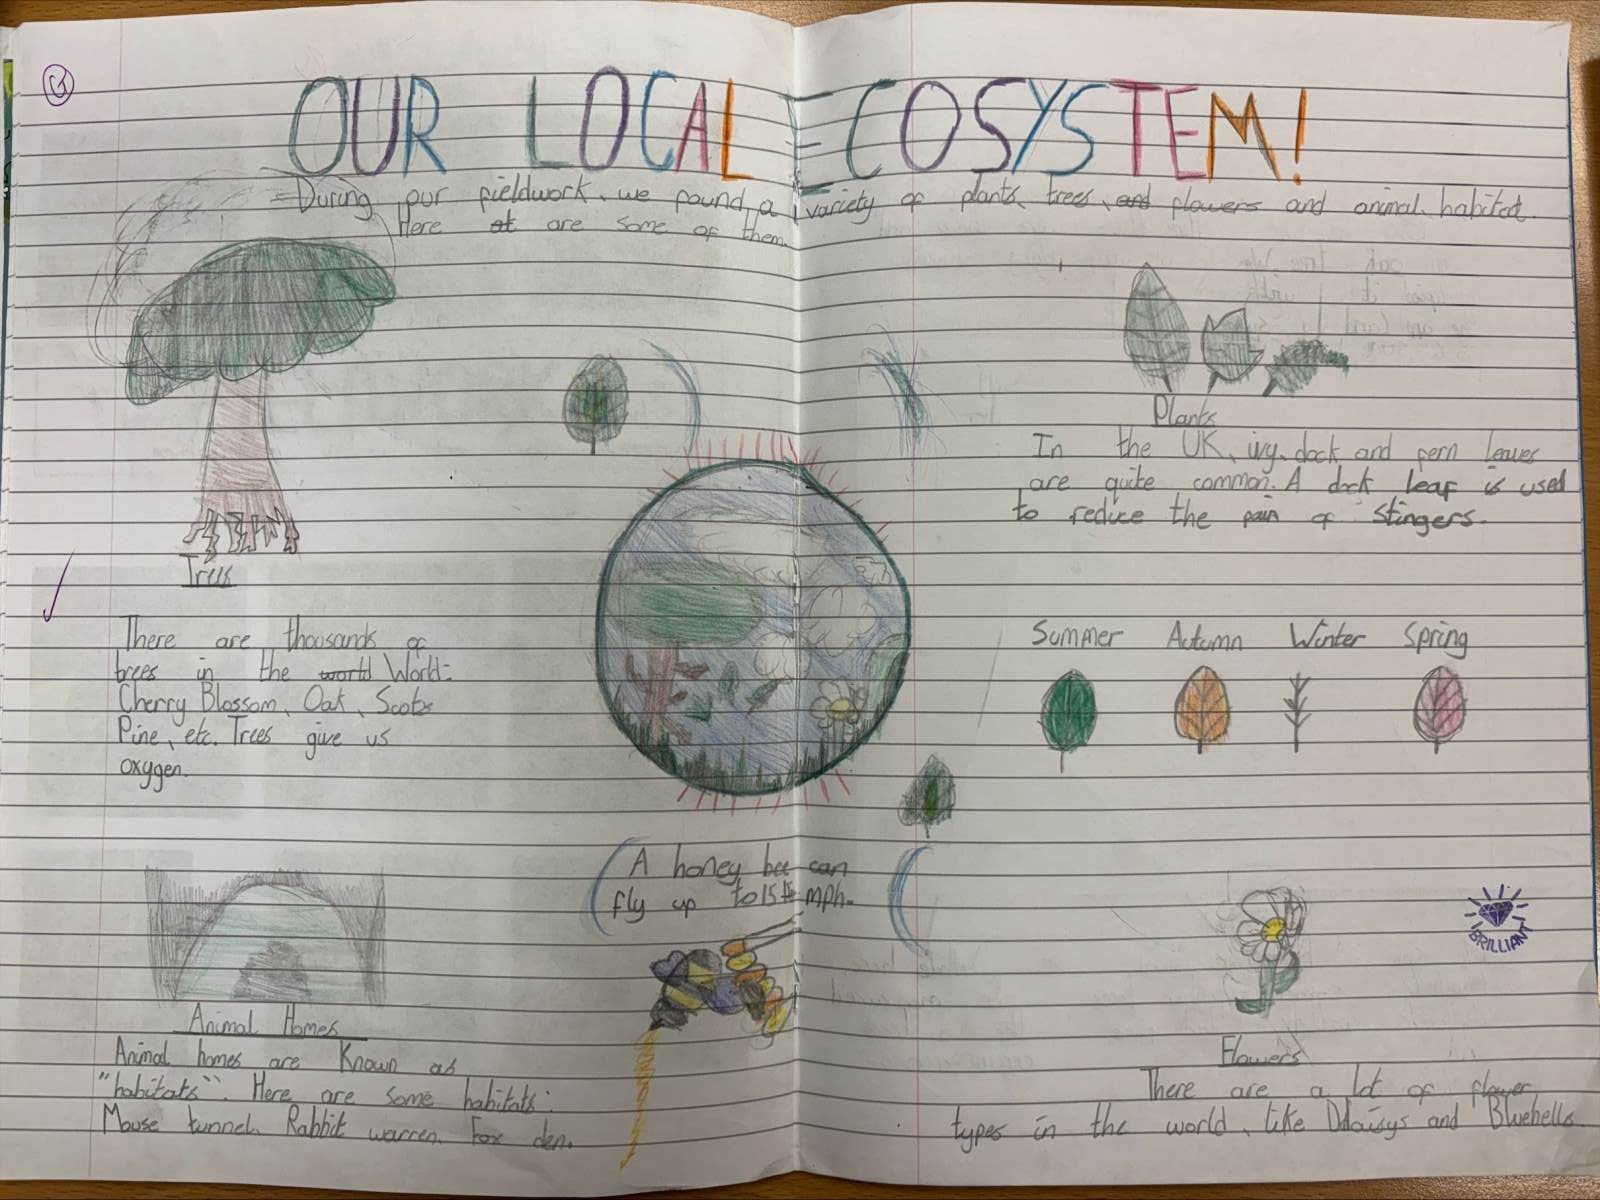 G
OUR LOCAL ECOSYSTEM!
During our fieldwork, we found a variety of plants, trees, and flowers and animal habitat.
Here at are some of them.
Plants
In the UK, ivy, dock and fern leaves
are quite common. A dock leaf is used
to reduce the pain of stingers.
Trees
There are thousands of
trees in the world World:
Cherry Blossom, Oak, Scots
Pine, etc. Trees give us
oxygen.
Summer Autumn Winter Spring
A honey bee can
fly up to 15 mph.
BRILLIANT
Animal Homes
Animal homes are known as
"habitats". Here are some habitats:
Mouse tunnel. Rabbit warren. Fox den.
Flowers
There are a lot of flower
types in the world, like Ddaisys and Bluebells.